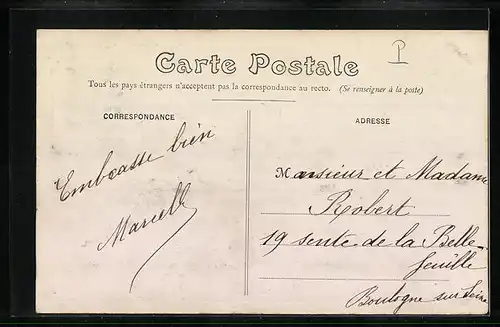 P
Carte Postale
Tous les pays étrangers n'acceptent pas la correspondance au recto. (Se renseigner à la poste)
CORRESPONDANCE
Embrasse bien
Marcell
ADRESSE
Monsieur et Madame
Robert
19 sente de la Belle-
feuille
Boulogne sur Seine